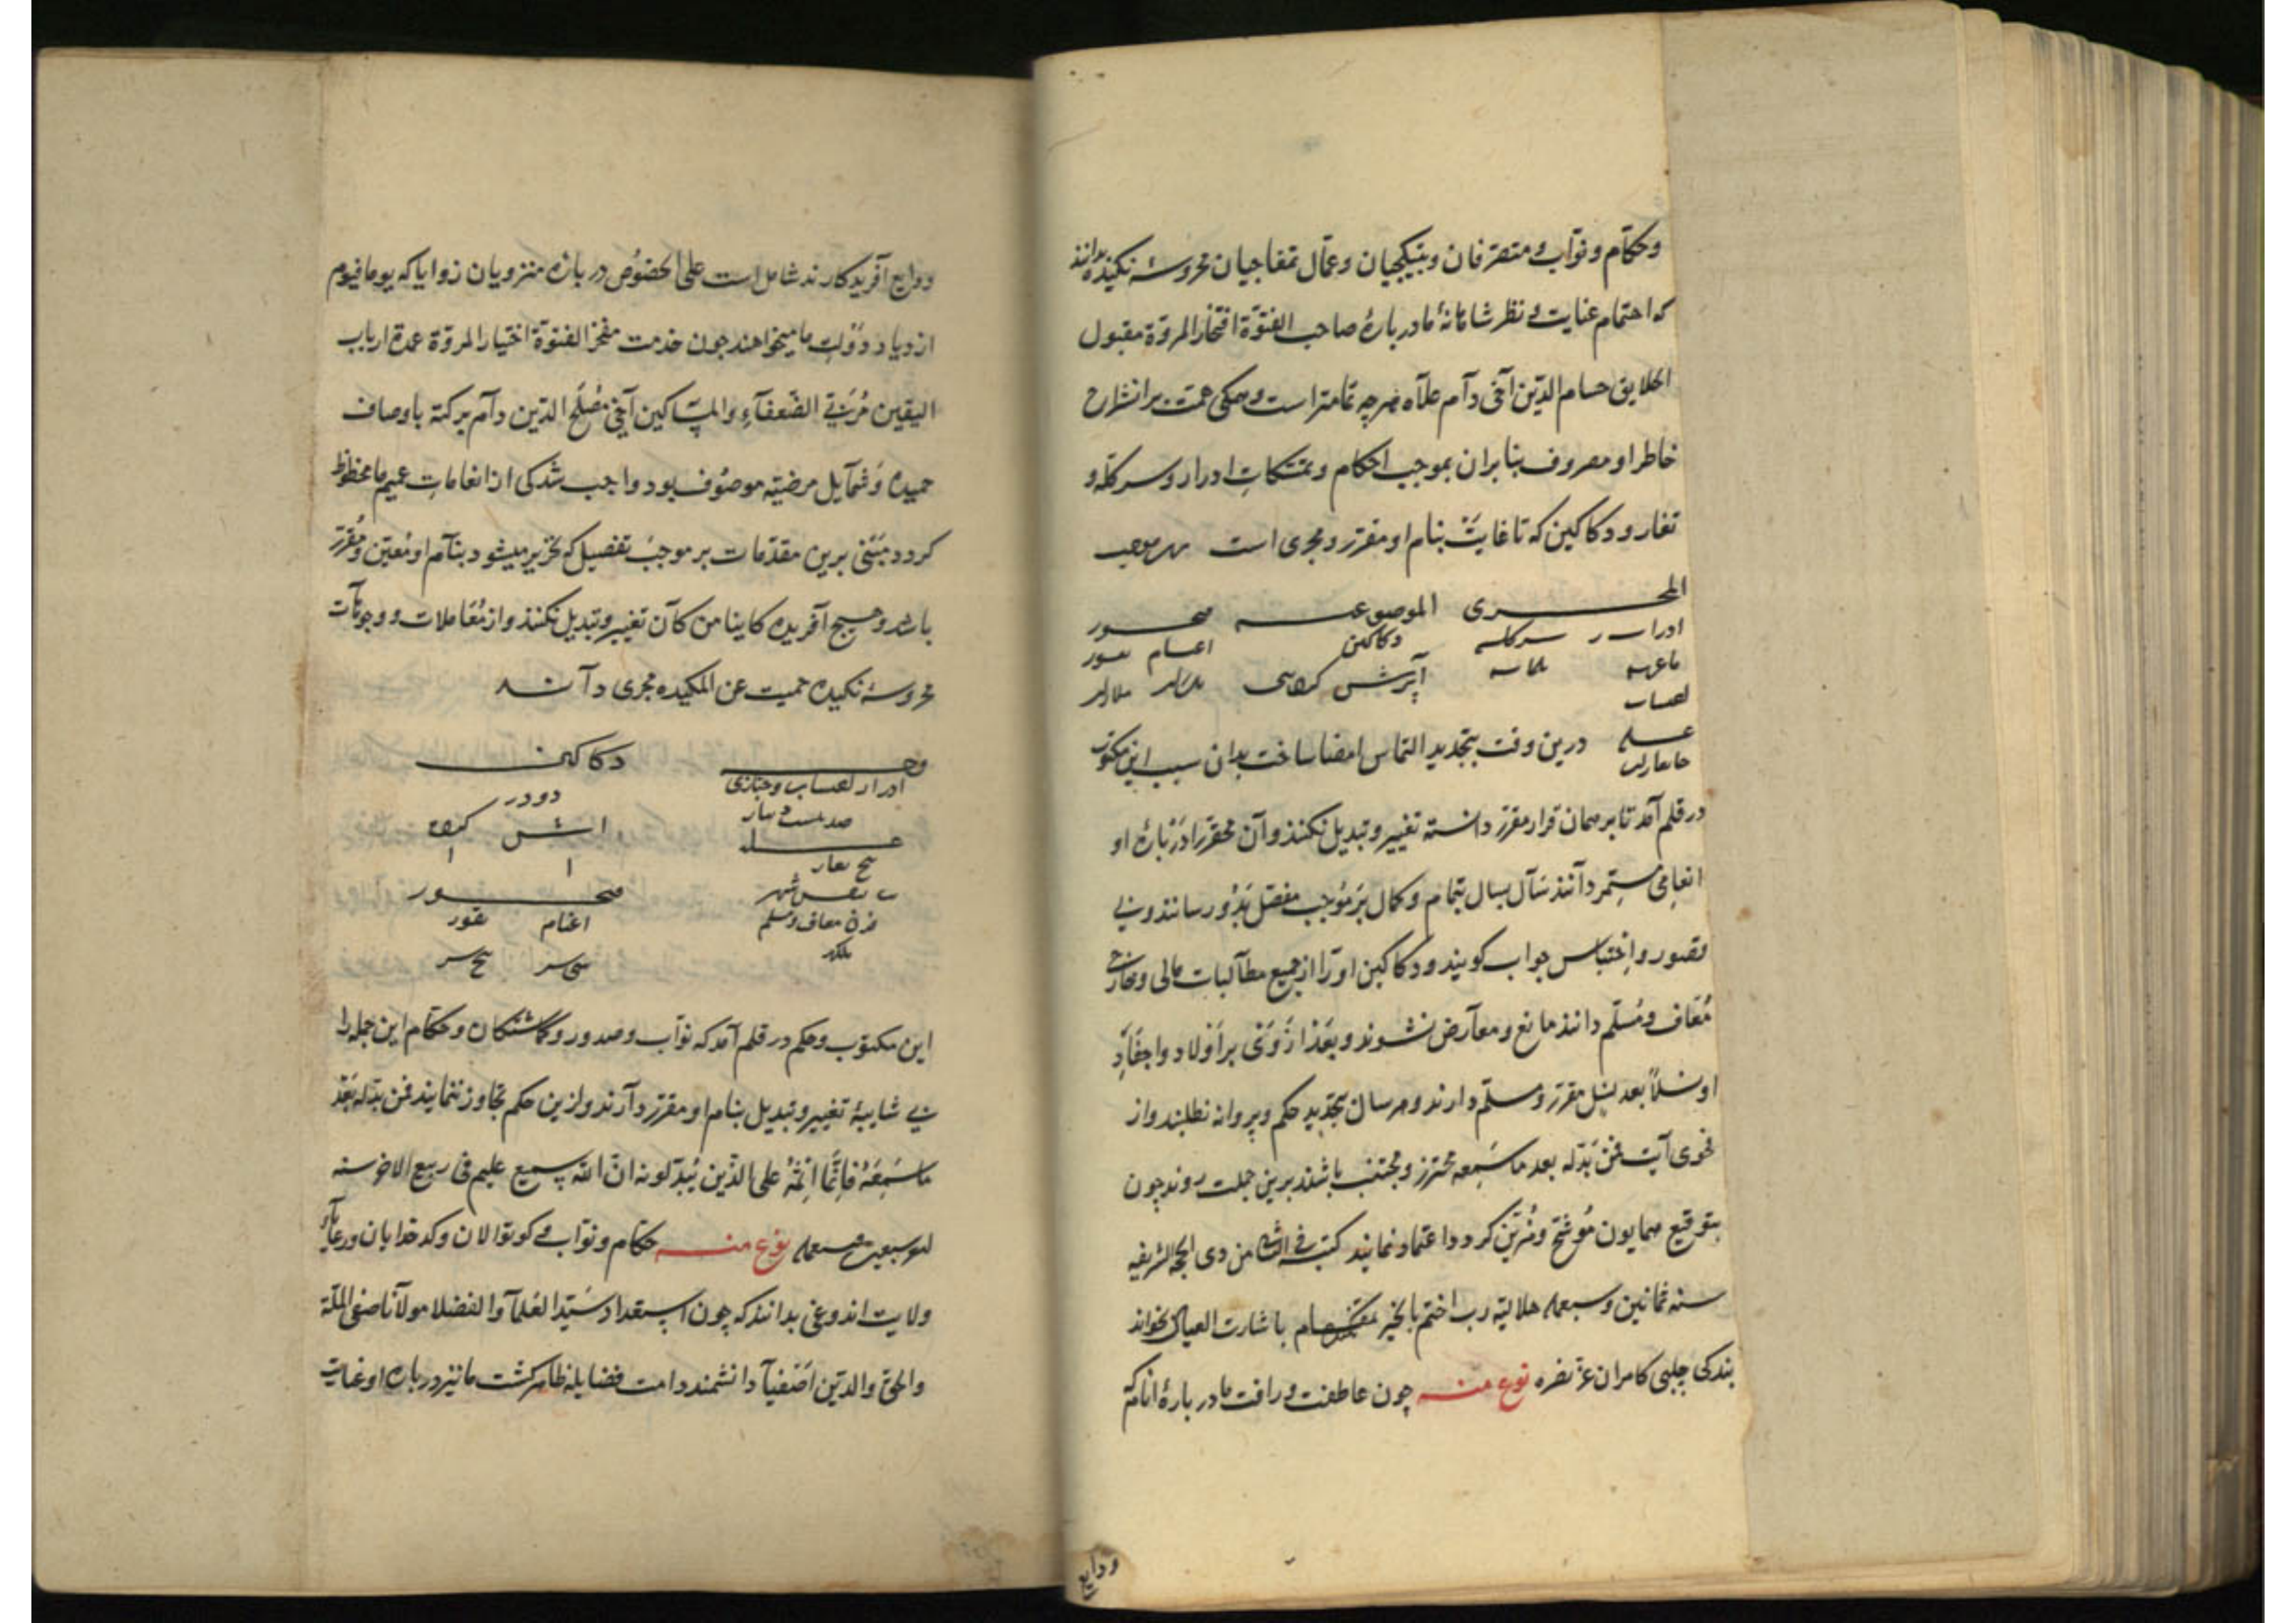 وحکام و نواب و متصرفان و بتیکچیان و عمال تمغاجیان محروسهٔ نکیده بدانند
که احتمام عنایت و نظر شاهانهٔ ما در بارهٔ صاحب الفتوة افتخار المروة مقبول
الخلایق حسام الدین آخی دام علاه هرچه تمامتر است و همکی همت بر انشراح
خاطر او مصروف بنا بران بموجب احکام و تمسکات ادرار و سرکله و
تغار و دکاکین که تا غایت بنام او مقرر و مجری است
المجری الموضوعه
ادرار سرکله دکاکین اغنام
درین وقت بتجدید التماس امضا ساخت بدان سبب این مکتوب
در قلم آمد تا بر همان قرار مقرر دانسته تغییر و تبدیل نکنند و آن محقر را در بارهٔ او
انعامی مستمر دانند سال بسال بتمام و کمال بر موجب مفصل بذو رسانند و بی
قصور و احتباس جواب کویند و دکاکین او را از جمیع مطالبات مالی و خارجی
معاف و مسلم دانند مانع و معارض نشوند و بعد از وی بر اولاد و احفاد
او نسلاً بعد نسل مقرر و مسلم دارند و هر سال بتجدید حکم و پروانه نطلبند و از
فحوی آیت فمن بدله بعد ما سمعه محترز و مجتنب باشند برین جملت روند چون
بتوقیع همایون موشح و مزین کردد اعتماد نمایند کتب فی من ذی الحجه الشریفه
سنه ثمانین و سبعمایه هلالیه رب اختم بالخیر باشارت
بندکی چلبی کامران عز نصره نوع منه چون عاطفت و رافت ما در بارهٔ انام که
ودایع
ودایع آفریدکارند شامل است علی الخصوص در بارهٔ منزویان زوایا که یوما فیوم
ازدیاد دولت ما میخواهند چون خدمت مفخر الفتوة اختیار المروة عمدة ارباب
الیقین مربی الضعفاء والمساکین آخی مصلح الدین دام برکته باوصاف
حمیده و شمایل مرضیه موصوف بود واجب شد کی از انعامات عمیم ما محظوظ
کردد مبنی برین مقدمات بر موجب تفصیل که تحریر میشود بنام او معین و مقرر
باشد و هیچ آفریده کاینا من کان تغییر و تبدیل نکنند و از معاملات و وجوهات
محروسهٔ نکیده حمیت عن المکیده مجری دانند
وجه دکاکین
ادرار دو در
غله
اغنام
معاف و مسلم
این مکتوب و حکم در قلم آمد که نواب و صدور و کماشتکان و حکام این جمله را
بی شایبهٔ تغییر و تبدیل بنام او مقرر دارند و ازین حکم تجاوز ننمایند فمن بدله بعد
ما سمعه فانما اثمه علی الذین یبدلونه ان الله سمیع علیم فی ربیع الاخر سنه
سبعمایه نوع منه حکام و نواب و کوتوالان و کدخدایان و رعایای
ولایت اندوغی بدانند که چون استعداد سید العلما و الفضلا مولانا صفی الملة
والحق والدین اصفیا دانشمند دامت فضایله ظاهر کشت ما نیز در بارهٔ او عنایت